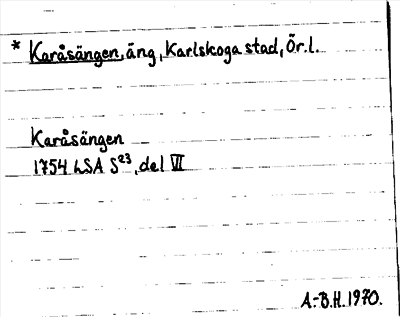 * Karåsängen, äng, Karlskoga stad, Ör. l.
Karåsängen
1754 LSA S23, del VII
A.-B.H. 1970.